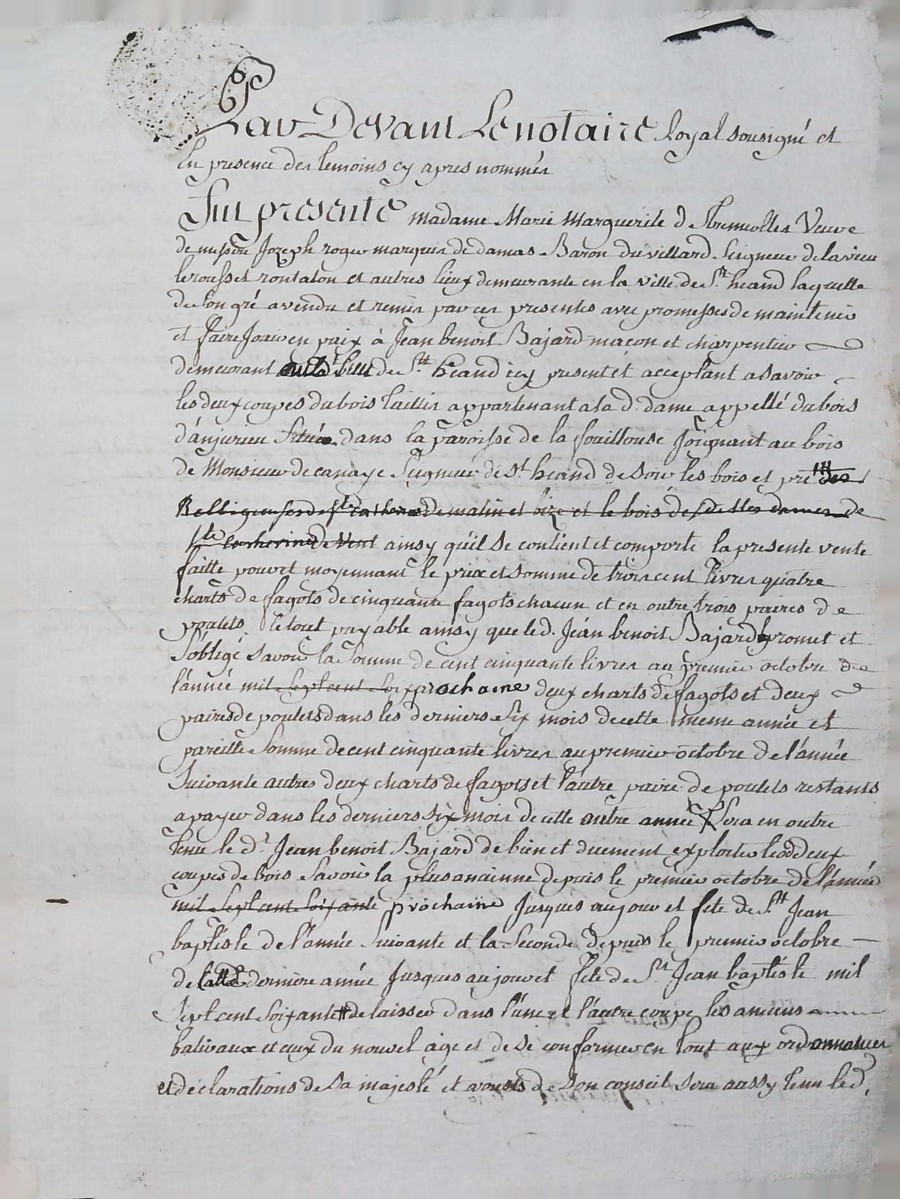 Par Devant Le notaire Royal sousigné et
En presence des temoins cy apres nommés
Fut presente madame Marie marguerite d
de messire Jozeph roger marquis de damas Baron du villard Seigneur de lavieu
le rousset rontalon et autres lieux demeurante en la ville de St. heand laquelle
de son gré a vendu et remis par ces presentes avec promesses de maintenir
et faire Jouir en paix à Jean benoit Bajard macon et charpentier
demeurant de St heand icy present et acceptant asavoir
les deux coupes du bois taillis appartenant a la d. dame appellé du bois
d'anjurieu Située dans la paroisse de la fouillouse Joignant au bois
de Monsieur de canaye Seigneur de St heand de soir les bois et pré des
Relligieuses de Ste catherine de matin et bize et le bois des dittes dames de
Ste Catherine de Vent ainsy qu'il se contient et comporte la presente vente
faitte pour et moyennant le prix et somme de trois cent livres quatre
charts de fagots de cinquante fagots chacun et en outre trois paires de
poulets le tout payable ainsy que le d. Jean benoit Bajard promet et
s'oblige savoir la Somme de cent cinquante livres au premier octobre de
l'année mil Sept cent Soix prochaine deux charts de fagots et deux
paires de poulets dans les derniers Six mois de cette meme année et
pareille Somme de cent cinquante livres au premier octobre de l'année
Suivante autres deux charts de fagots et l'autre paire de poulets restants
a payer dans les derniers Six mois de cette autre année Sera en outre
tenu le d. Jean benoit Bajard de bien et duement exploiter deux
coupes de bois Savoir la plus ancienne depuis le premier octobre de l'année
mil Sept cent Soixante prochaine Jusques au jour et fete de St Jean
baptiste de l'année Suivante et la Seconde depuis le premier octobre
de derniere année Jusques au jour et fete de St Jean baptiste mil
Sept cent Soixante de laisser dans l'une et l'autre coupe les anciens
balivaux et ceux du nouvel age et de se conformer en tout aux ordonnances
et déclarations de Sa majesté et arrets de Son conseil Sera aussy tenu le d.